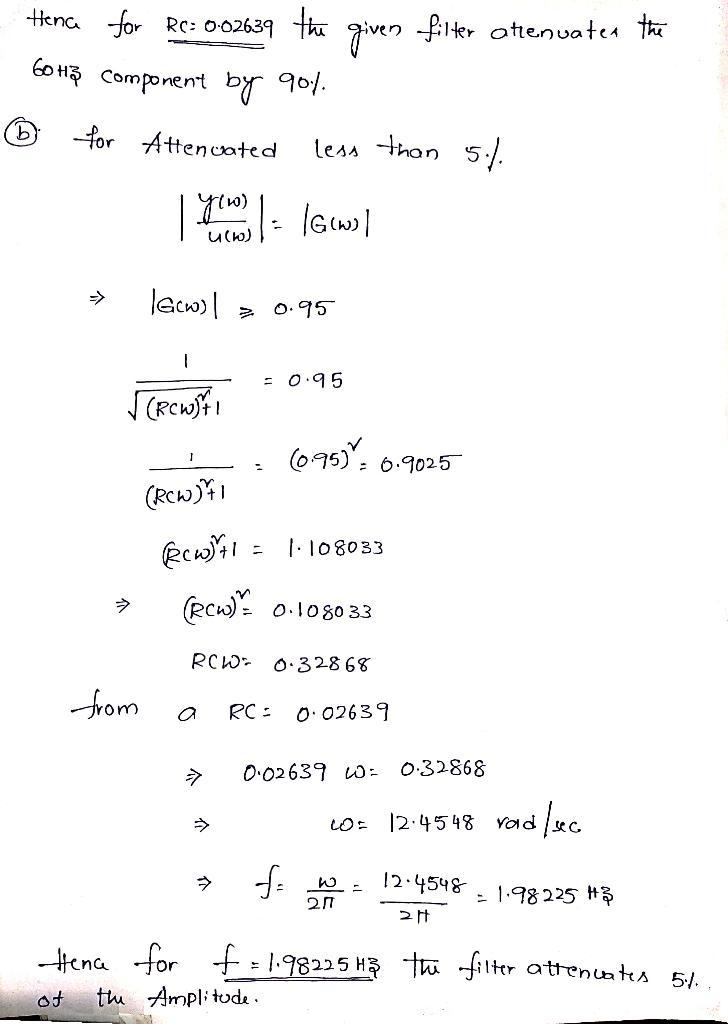 Hence for RC= 0.02639 the given filter attenuates the
60Hz component by 90%.
(b) for Attenuated less than 5%.
|y(w)/u(w)| = |G(w)|
⇒ |G(w)| ≥ 0.95
1/√((RCW)²+1) = 0.95
1/((RCW)²+1) = (0.95)² = 0.9025
(RCW)²+1 = 1.108033
⇒ (RCW)² = 0.108033
RCW= 0.32868
from a RC= 0.02639
⇒ 0.02639 W= 0.32868
⇒ W= 12.4548 rad/sec
⇒ f= W/2π = 12.4548/2π = 1.98225 Hz
Hence for f = 1.98225 Hz the filter attenuates 5%.
of the Amplitude.